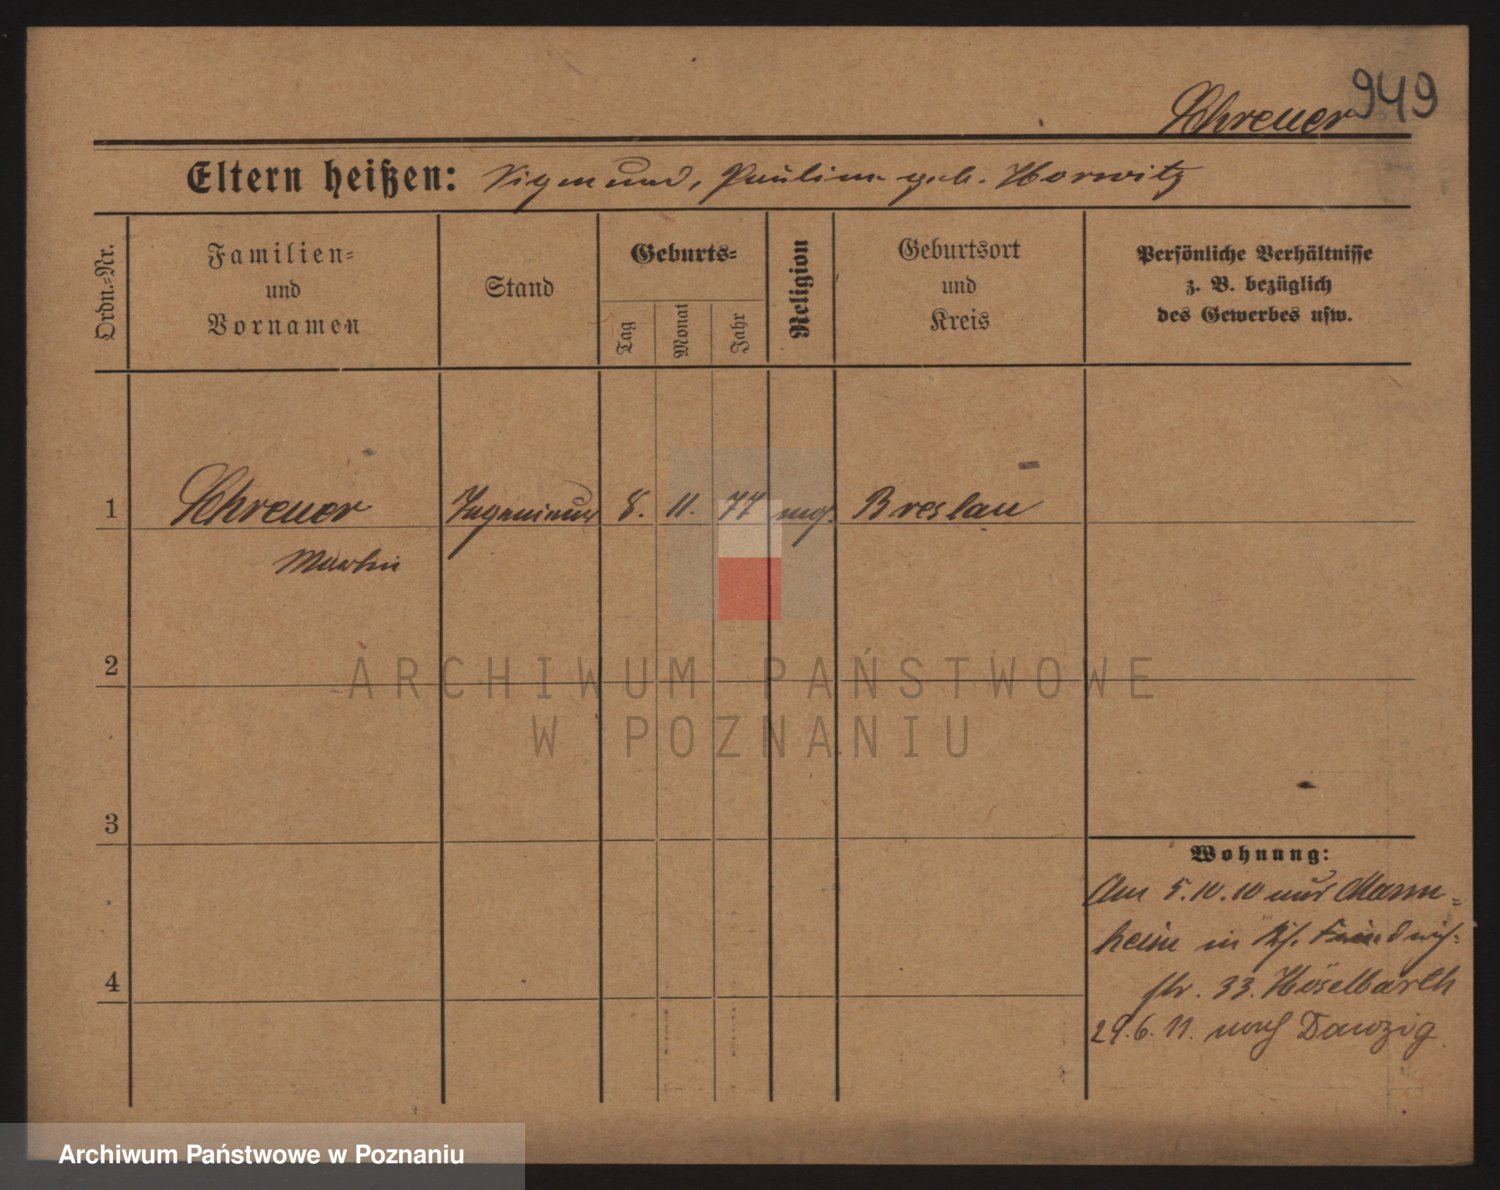 Schreuer 949
Eltern heißen: Sigmund, Pauline geb. Horwitz
Ordn.-Nr.
Familien-
und
Vornamen
Stand
Geburts-
Tag
Monat
Jahr
Religion
Geburtsort
und
Kreis
Persönliche Verhältnisse
z. B. bezüglich
des Gewerbes usw.
1 Schreuer Ingenieur 8. 11. 77 Breslau
Martin
2
ARCHIWUM PAŃSTWOWE
W POZNANIU
3
Wohnung:
Am 5.10.10 aus Mann-
heim in
4
str. 33. Höselbarth
29.6.11. nach Danzig
Archiwum Państwowe w Poznaniu